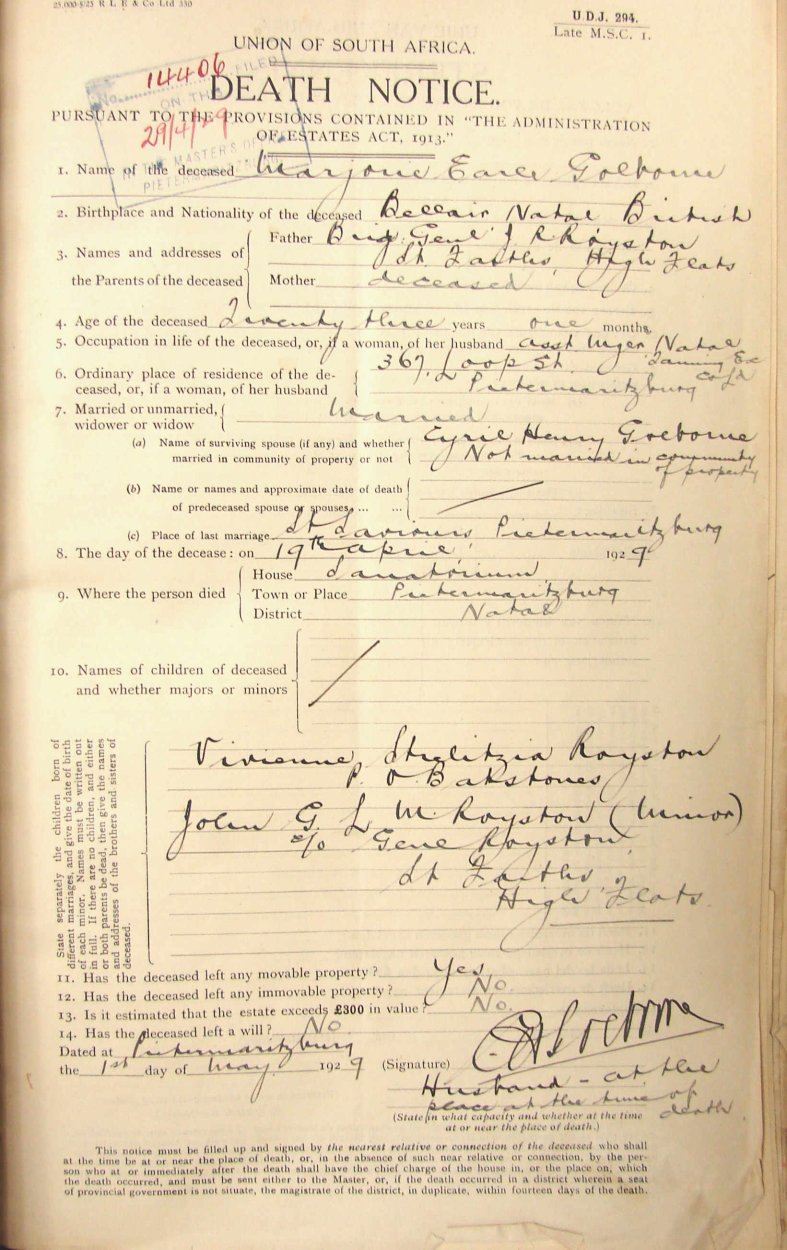 25,000-5/25 R L E & Co Ltd 330
U.D.J. 294.
Late M.S.C. 1.
UNION OF SOUTH AFRICA.
14406
No. FILED
DEATH NOTICE.
ON THE
PURSUANT TO THE PROVISIONS CONTAINED IN "THE ADMINISTRATION
29/4/29
OF ESTATES ACT, 1913."
MASTERS
1. Name of the deceased Marjorie Earle Golborne
2. Birthplace and Nationality of the deceased Bellair Natal British
3. Names and addresses of the Parents of the deceased
Father Brig. Genl J R Royston
St. Faiths, High Flats
Mother deceased
4. Age of the deceased Twenty three years one months.
5. Occupation in life of the deceased, or, if a woman, of her husband asst Mger Natal
Tanning Ex Co Ld
6. Ordinary place of residence of the deceased, or, if a woman, of her husband
367, Loop St.
Pietermaritzburg
7. Married or unmarried, widower or widow
Married
(a) Name of surviving spouse (if any) and whether married in community of property or not
Cyril Henry Golborne
Not married in community
of property
(b) Name or names and approximate date of death
of predeceased spouse or spouses ... ...
(c) Place of last marriage St Saviours Pietermaritzburg
8. The day of the decease: on 19th April, 1929
9. Where the person died
House Sanatorium
Town or Place Pietermaritzburg
District Natal
10. Names of children of deceased
and whether majors or minors
State separately the children born of
different marriages, and give the date of birth
of each minor. Names must be written out
in full. If there are no children, and either
or both parents be dead, then give the names
and addresses of the brothers and sisters of
deceased.
Vivienne Strelitzia Royston
P. O Bakstones
John G. L M Royston (Minor)
c/o Genl Royston,
St Faiths,
High Flats.
11. Has the deceased left any movable property? Yes
12. Has the deceased left any immovable property? No
13. Is it estimated that the estate exceeds £300 in value? No.
14. Has the deceased left a will? No
Dated at Pietermaritzburg
the 1st day of May 1929
(Signature) C H Golborne
Husband - at the
place at the time of
death.
(State in what capacity and whether at the time
at or near the place of death.)
This notice must be filled up and signed by the nearest relative or connection of the deceased who shall
at the time be at or near the place of death, or, in the absence of such near relative or connection, by the per-
son who at or immediately after the death shall have the chief charge of the house in, or the place on, which
the death occurred, and must be sent either to the Master, or, if the death occurred in a district wherein a seat
of provincial government is not situate, the magistrate of the district, in duplicate, within fourteen days of the death.